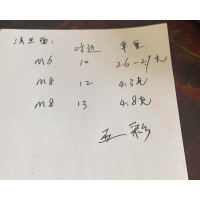 法兰面: 对边 单重
M6 10 2.6-2.7克
M8 12 4.3克
M8 13 4.8克
五彩